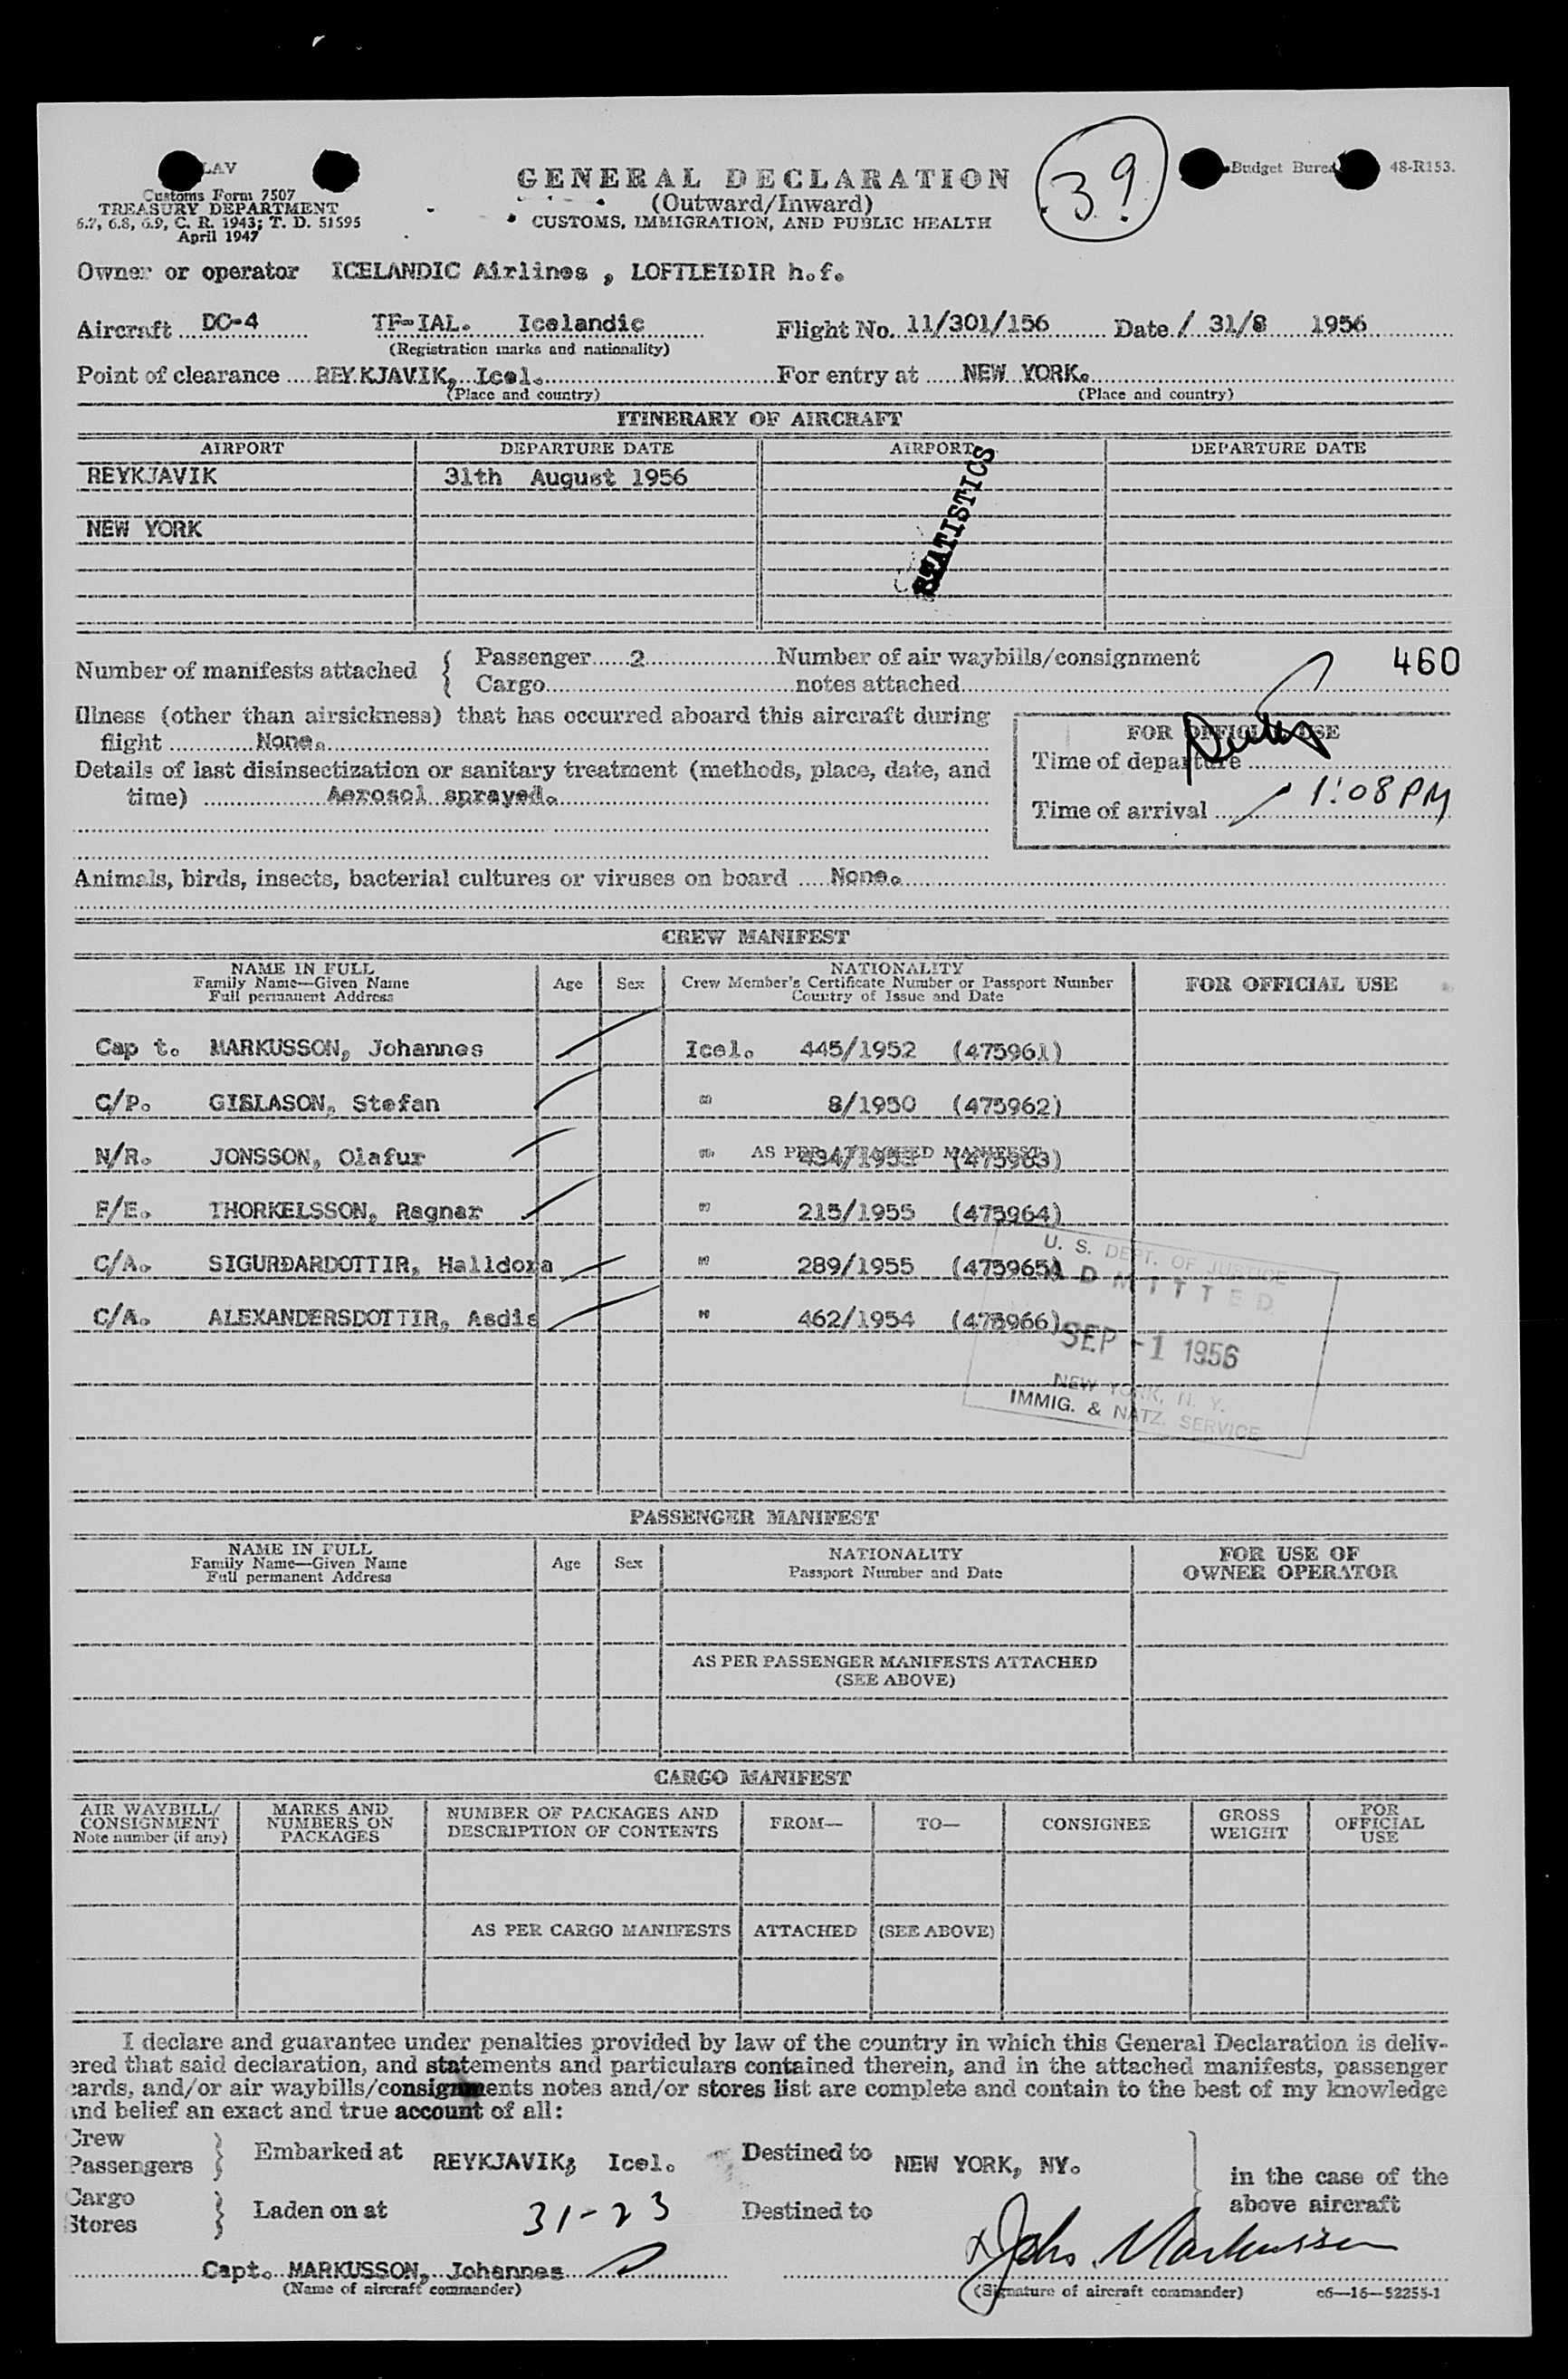 LAV
Customs Form 7507
TREASURY DEPARTMENT
6.7, 6.8, 6.9, C. R. 1943; T. D. 51595
April 1947
GENERAL DECLARATION
(Outward/Inward)
CUSTOMS, IMMIGRATION, AND PUBLIC HEALTH
39
Budget Burea 48-R153.
Owner or operator ICELANDIC Airlines , LOFTLEIDIR h.f.
Aircraft DC-4 TF-IAL. Icelandic Flight No. 11/301/156 Date / 31/8 1956
(Registration marks and nationality)
Point of clearance REYKJAVIK, Icel. For entry at NEW YORK.
(Place and country) (Place and country)
ITINERARY OF AIRCRAFT
AIRPORT DEPARTURE DATE AIRPORT DEPARTURE DATE
REYKJAVIK 31th August 1956
STATISTICS
NEW YORK
Number of manifests attached { Passenger 2 Number of air waybills/consignment 460
Cargo notes attached
Illness (other than airsickness) that has occurred aboard this aircraft during
flight None.
Details of last disinsectization or sanitary treatment (methods, place, date, and
time) Aerosol sprayed.
FOR OFFICIAL USE
Time of departure
Time of arrival 1:08 PM
Animals, birds, insects, bacterial cultures or viruses on board None.
CREW MANIFEST
NAME IN FULL
Family Name—Given Name
Full permanent Address
Age Sex
NATIONALITY
Crew Member's Certificate Number or Passport Number
Country of Issue and Date
FOR OFFICIAL USE
Cap t. MARKUSSON, Johannes Icel. 445/1952 (475961)
C/P. GISLASON, Stefan " 8/1950 (475962)
N/R. JONSSON, Olafur " (475963)
AS PER ATTACHED MANIFEST
F/E. THORKELSSON, Ragnar " 215/1955 (475964)
C/A. SIGURÐARDOTTIR, Halldora " 289/1955 (475965)
C/A. ALEXANDERSDOTTIR, Asdis " 462/1954 (475966)
U. S. DEPT. OF JUSTICE
ADMITTED
SEP -1 1956
NEW YORK, N. Y.
IMMIG. & NATZ. SERVICE
PASSENGER MANIFEST
NAME IN FULL
Family Name—Given Name
Full permanent Address
Age Sex
NATIONALITY
Passport Number and Date
FOR USE OF
OWNER OPERATOR
AS PER PASSENGER MANIFESTS ATTACHED
(SEE ABOVE)
CARGO MANIFEST
AIR WAYBILL/
CONSIGNMENT
Note number (if any)
MARKS AND
NUMBERS ON
PACKAGES
NUMBER OF PACKAGES AND
DESCRIPTION OF CONTENTS
FROM—
TO—
CONSIGNEE
GROSS
WEIGHT
FOR
OFFICIAL
USE
AS PER CARGO MANIFESTS ATTACHED (SEE ABOVE)
I declare and guarantee under penalties provided by law of the country in which this General Declaration is deliv-
ered that said declaration, and statements and particulars contained therein, and in the attached manifests, passenger
cards, and/or air waybills/consignments notes and/or stores list are complete and contain to the best of my knowledge
and belief an exact and true account of all:
Crew
Passengers } Embarked at REYKJAVIK, Icel. Destined to NEW YORK, NY.
Cargo
Stores } Laden on at 31-23 Destined to
in the case of the
above aircraft
Capt. MARKUSSON, Johannes Johs. Markusson
(Name of aircraft commander) (Signature of aircraft commander) c6—16—52255-1